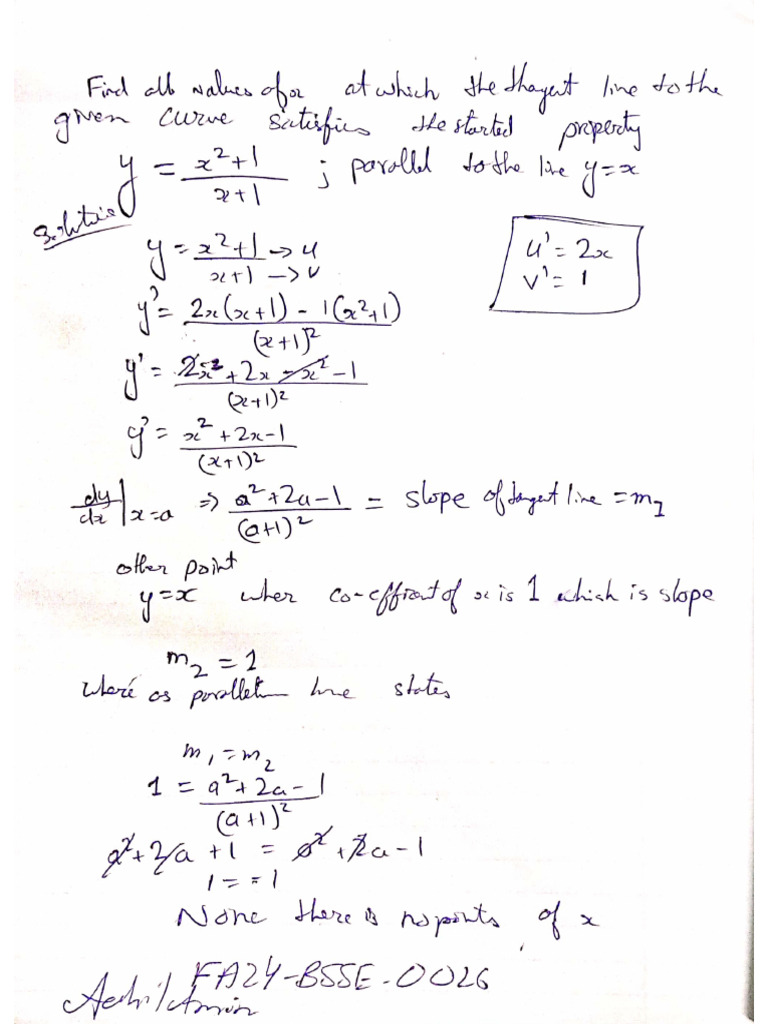 Find all values of x at which the thagent line to the
given curve satisfies the started property
y = x²+1 / x+1 ; parallel to the line y=x
Solution
y = x²+1 → u / x+1 → v
u' = 2x
v' = 1
y' = 2x(x+1) - 1(x²+1) / (x+1)²
y' = 2x² + 2x - x² - 1 / (x+1)²
y' = x² + 2x - 1 / (x+1)²
dy/dx |x=a ⇒ a² + 2a - 1 / (a+1)² = slope of tangent line = m₁
other point
y=x wher co-effient of x is 1 which is slope
m₂ = 1
where as line states
m₁ = m₂
1 = a² + 2a - 1 / (a+1)²
a² + 2a + 1 = a² + 2a - 1
1 = -1
None there is no points of x
FA24-BSSE-0026